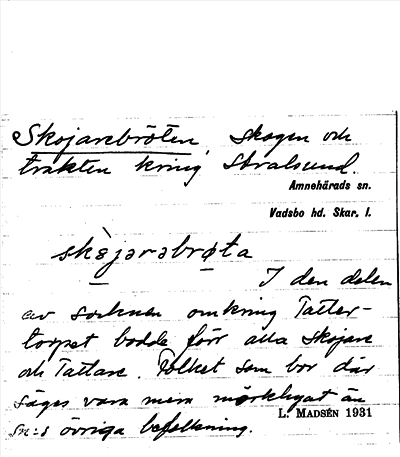 Skojarebråten, skogen och
trakten kring Stralsund.
Amnehärads sn.
Vadsbo hd. Skar. l.
skòjarabrǫta
I den delen
av socknen omkring Tatter-
torpet bodde förr alla skojare
och Tattare. Folket som bor där
säges vara mera mörkhyat än
L. MADSÉN 1931
sn:s övriga befolkning.